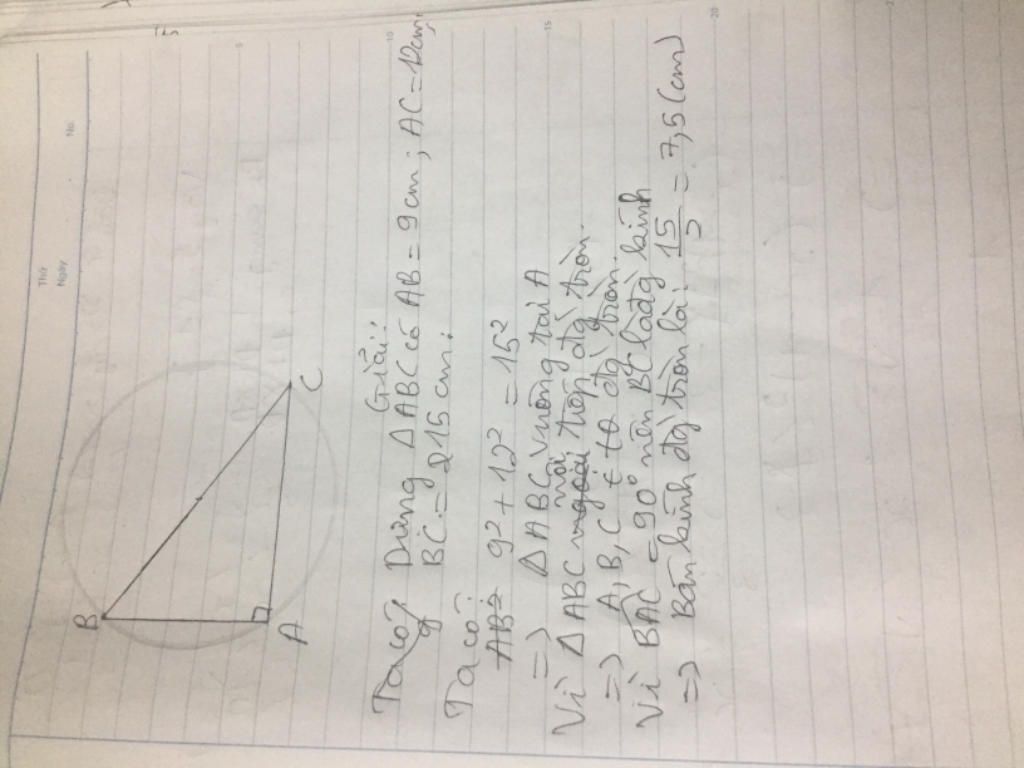 Thứ
Ngày
No.
5
10
15
20
B
A
C
Giải:
Ta có: Dựng Δ ABC có AB = 9 cm; AC = 12cm;
BC = 15 cm.
Ta có:
AB² 9² + 12² = 15²
=> Δ ABC vuông tại A
Vì Δ ABC nội tiếp đg̀ tròn.
=> A, B, C ∈ đg̀ tròn.
Vì BAC = 90° nên BC là đg̀ kính
=> Bán kính đg̀ tròn là: 15/2 = 7,5 (cm)